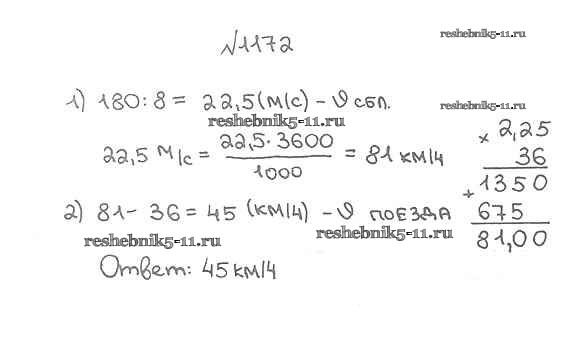 №1172
reshebnik5-11.ru
1) 180:8 = 22,5 (м/с) - υ сбл.
reshebnik5-11.ru
reshebnik5-11.ru
22,5 м/с = 22,5·3600 / 1000 = 81 км/ч
× 2,25
36
+ 1350
675
81,00
2) 81 - 36 = 45 (км/ч) - υ поезда
reshebnik5-11.ru
reshebnik5-11.ru
Ответ: 45 км/ч